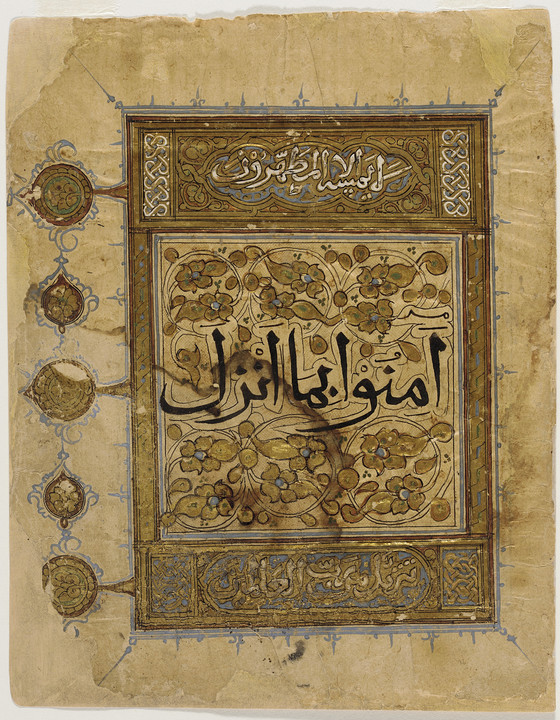 لا يمسه الا المطهرون
آمَنُوا بما اَنْزَلَ
تنزيل من رب العالمين